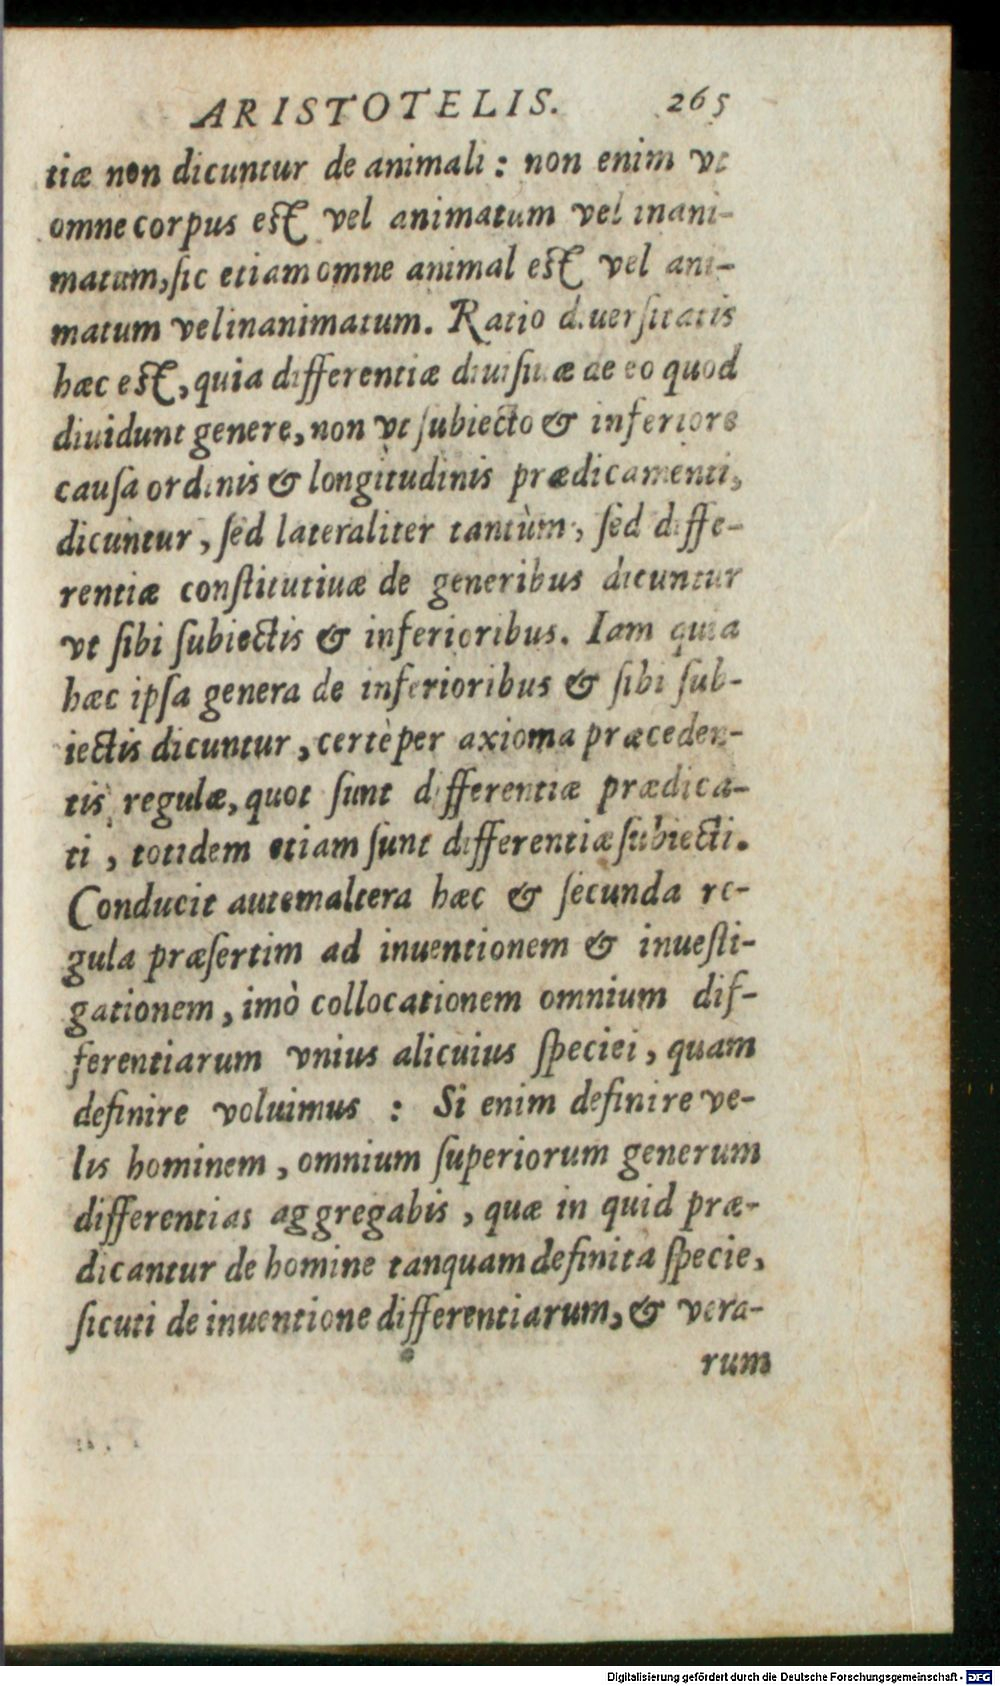 ARISTOTELIS. 265
tiæ non dicuntur de animali : non enim vt
omne corpus eſt vel animatum vel inani-
matum, ſic etiam omne animal eſt vel ani-
matum vel inanimatum. Ratio diuerſitatis
hæc eſt, quia differentiæ diuiſiuæ de eo quod
diuidunt genere, non vt ſubiecto & inferiore
cauſa ordinis & longitudinis prædicamenti,
dicuntur, ſed lateraliter tantùm, ſed diffe-
rentiæ conſtitutiuæ de generibus dicuntur
vt ſibi ſubiectis & inferioribus. Iam quia
hæc ipſa genera de inferioribus & ſibi ſub-
iectis dicuntur, certè per axioma præceden-
tis regulæ, quot ſunt differentiæ prædica-
ti, totidem etiam ſunt differentiæ ſubiecti.
Conducit autem altera hæc & ſecunda re-
gula præſertim ad inuentionem & inueſti-
gationem, imò collocationem omnium dif-
ferentiarum vnius alicuius ſpeciei, quam
definire voluimus : Si enim definire ve-
lis hominem, omnium ſuperiorum generum
differentias aggregabis, quæ in quid præ-
dicantur de homine tanquam definita ſpecie,
ſicuti de inuentione differentiarum, & vera-
rum
Digitalisierung gefördert durch die Deutsche Forschungsgemeinschaft - DFG